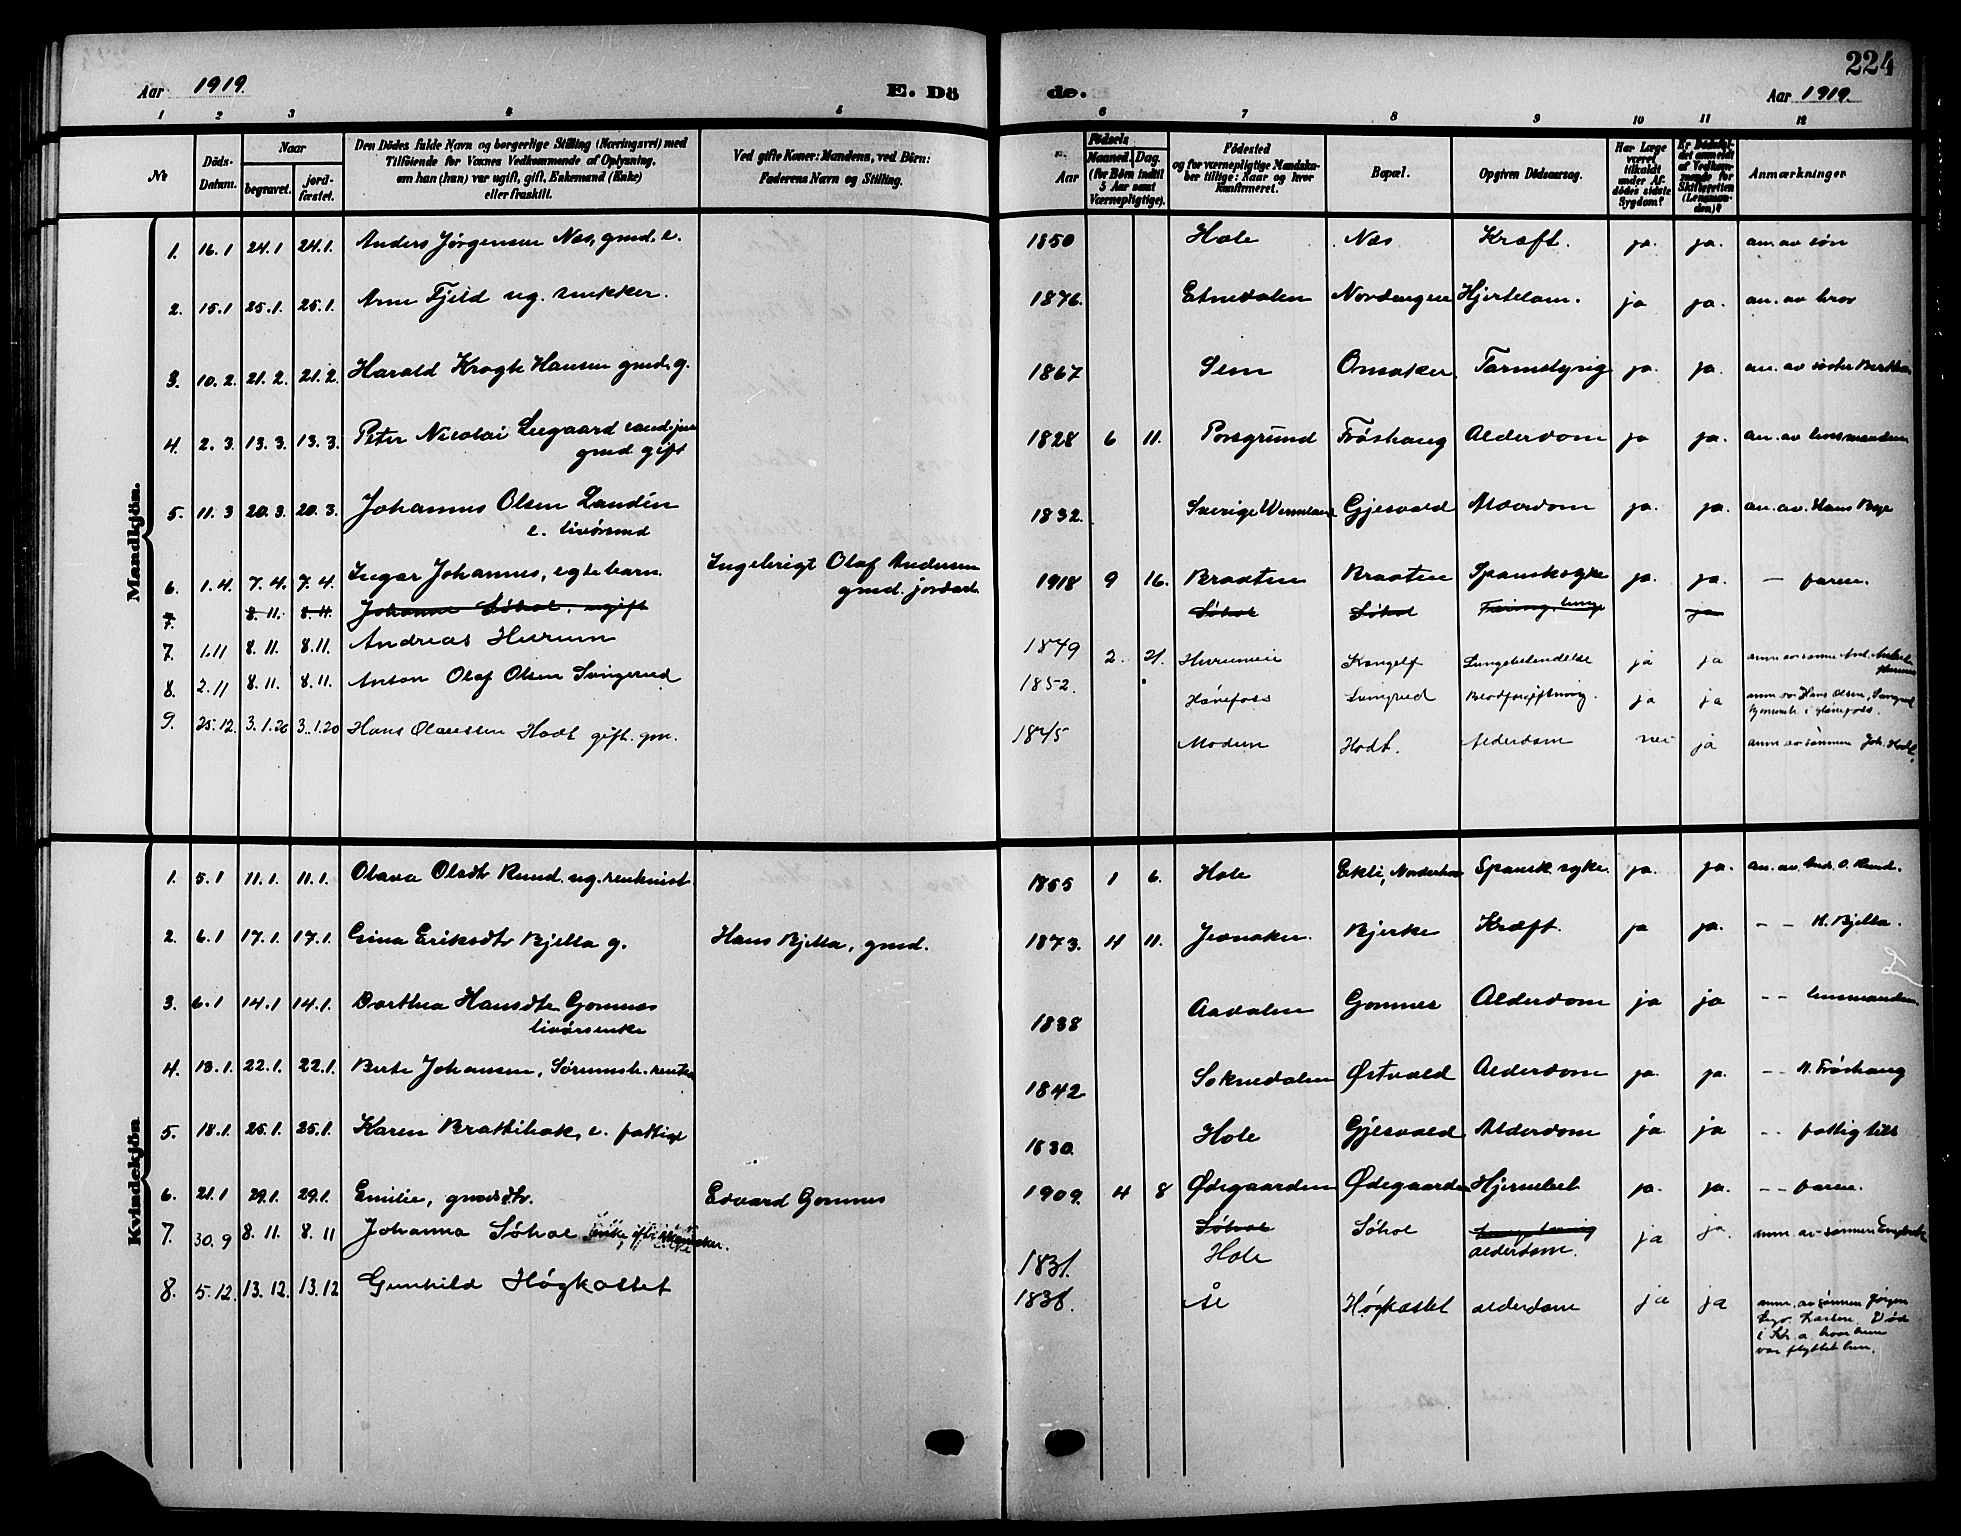 224
Aar 1919. E. Dö de. Aar 1919.
1 2 3 4 5 6 7 8 9 10 11 12
No
Döds-Datum.
Naar
begravet.
jord-fæstet.
Den Dödes fulde Navn og borgerlige Stilling (Næringsvei) med
Tilföiende for Voxnes Vedkommende af Oplysning,
om han (hun) var ugift, gift, Enkemand (Enke)
eller fraskilt.
Ved gifte Koner: Mandens, ved Börn:
Faderens Navn og Stilling.
Aar
Födsels
Maaned. Dag.
(for Börn indtil
5 Aar samt
Værnepligtige).
Födested
og for værnepligtige Mandska-
ber tillige: Naar og hvor
Konfirmeret.
Bopæl.
Opgiven Dödsaarsag.
Har Læge
været
tilkaldt
under Af-
dödes sidste
Sygdom?
Er Dödsfal-
det anmeldt
af Vedkom-
mende for
Skifteretten
(Lensman-
den)?
Anmærkninger
Mandkjön.
1. 16.1 24.1 24.1. Anders Jørgensen Næs, gmd. e. 1850 Hole Næs Kræft. ja. ja. an. av søn
2. 15.1 25.1. 25.1. Arne Fjeld ug. snekker. 1876. Etnedalen Nordengen Hjertelam. ja ja. an. av bror
3. 10.2. 21.2. 21.2. Harald Krogh Hansen gmd. g. 1867 Sem Onsaker Tarmslyng ja. ja. an. av søster Berthea
4. 2.3. 13.3. 13.3. Peter Nicolai Leegaard
gmd. gift 1828 6 11. Porsgrund Frøshaug Alderdom ja ja. an. av lensmanden
5. 11.3 20.3. 20.3. Johannes Olsen Landén
e. livørsmd 1832. Sverige Wermland Gjesvald Alderdom ja. ja. an. av. Hans
6. 1.4. 7.4. 7.4. Ingar Johannes, egte barn. Ingebrigt Olaf Andersen
gmd. jordarb. 1918 9 16. Braaten Braaten Spanskesyke ja. ja. — faren.
7. 8.11. 8.11. Johanna Søhol, ugift Søhol Søhol ja
7. 1.11 8.11. 8.11. Andreas Hurum 1849 2. 21. Lungebetendelse ja ja
8. 2.11 8.11. 8.11. Anton Olaf Olsen Svingerud 1852. Hønefoss Svingrud Blodforgiftning. ja ja anm. av Hans Olsen,
9. 25.12. 3.1.20 3.1.20 Hans Olaussen Hodt gift. gm. 1845 Modum Hodt. Alderdom nei ja anm. av sønnen Joh. Hodt.
Kvindekjön
1. 5.1 11.1. 11.1. Olava Olsdtr Rund. ug. 1855 1 6. Hole Ekli, Norderhov Spansk syke. ja. ja. an. av. And. O. Rund.
2. 6.1 17.1. 17.1. Gina Eriksdtr Bjella g. Hans Bjella, gmd. 1873. 4 11. Jevnaker. Bjerke Kræft. ja ja. - - H. Bjella.
3. 6.1 14.1 14.1. Dorthea Hansdtr Gomnes
livørsenke 1838 Aadalen Gomnes Alderdom ja ja - - lensmanden
4. 13.1. 22.1. 22.1. Berte Johansen, 1842 Soknedalen Østvald Alderdom ja. ja. - - N. Frøshaug
5. 18.1. 25.1. 25.1. Karen Brattebak, e. fattige 1830. Hole Gjesvald Alderdom ja ja - - fattigtils
6. 21.1 29.1. 29.1. Emilie, gmdsdtr. Edvard Gomnes 1909. 4 8 Ødegaarden Ødegaarden ja. ja. - - faren.
7. 30.9 8.11. 8.11 Johanna Søhol enke 1831. Søhol
Hole Søhol alderdom. ja ja. anm. av sønnen
8. 5.12. 13.12. 13.12 Gunhild Høgkastet 1838. Høgkastet alderdom ja ja anm. av sønnen Jørgen
Larsen. Død
hvor hun
var flyttet hen.